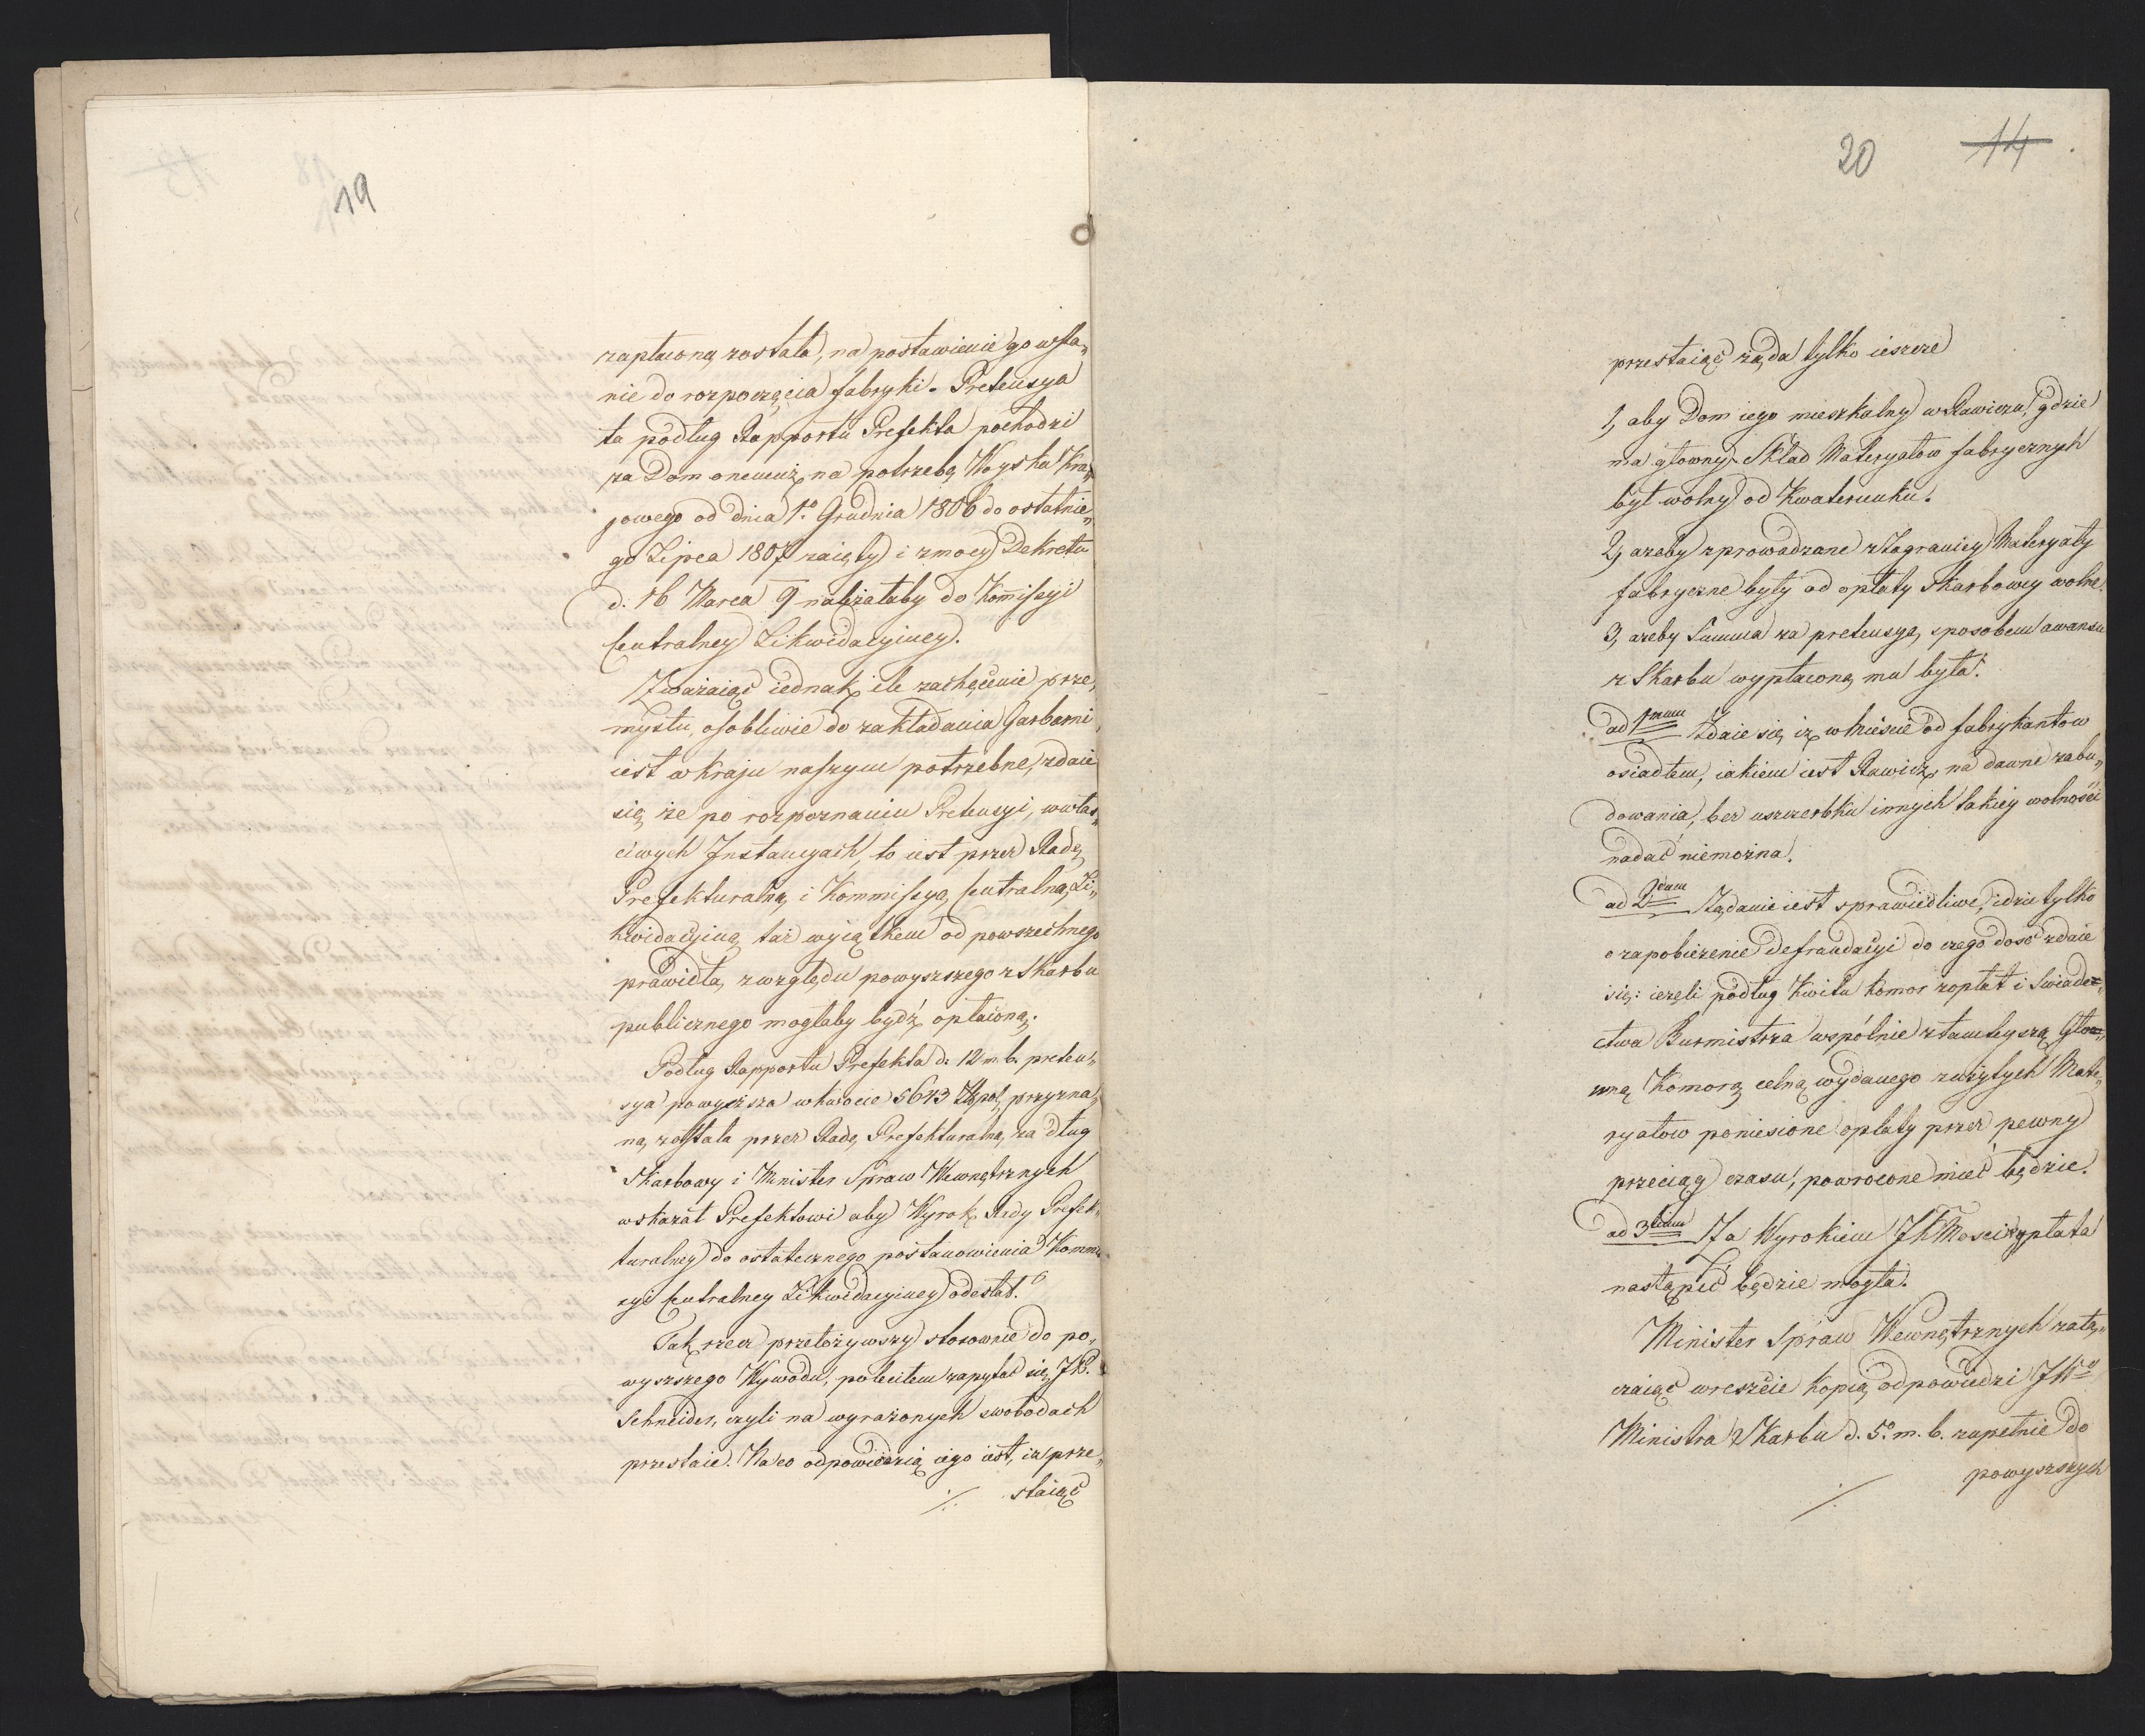 19
zapłaconą została, na postawienie go w sta„
nie do rozpoczęcia fabryki. Pretensya
ta podług Rapportu Prefekta pochodzi
za Dom onemuż na potrzebę Woyska Kra„
jowego od dnia 1o. Grudnia 1806 do ostatnie„
go Lipca 1807 zaięty i z mocy Dekretu
d. 16 Marca 9 należałaby do Kommissyi
Centralney Likwidacyiney.
Zważaiąc iednak ile zachęcenie prze„
mysłu, osobliwie do zakładania Garbarni
iest w kraju naszym potrzebne, zdaie
się, że po rozpoznaniu Pretensyi, w właś„
ciwych Instancyach, to iest przez Radę
Prefekturalną i Kommissyą Centralną Li„
kwidacyiną taż wyiątkem od powszechnego
prawidła, z względu powyższego z Skarbu
publicznego mogłaby bydź opłaconą.
Podług Rapportu Prefekta d. 12 m. b. preten„
sya powyższa w kwocie 5643 Złpol. przyzna„
ną została przez Radę Prefekturalną za dług
Skarbowy i Minister Spraw Wewnętrznych
wskazał Prefektowi aby Wyrok Rady Prefek„
turalney do ostatecznego postanowienia Kommis
syi Centralney Likwidacyiney odesłał.
Tak rzecz przełożywszy stosownie do po„
wyższego Wywodu, poleciłem zapytać się JP.
Schneider, czyli na wyrażonych swobodach
przestaie. Na co odpowiedzią iego iest, iż prze„
staiąc
20 14
przestaiąc żąda tylko ieszcze
1, aby Dom iego mieszkalny w Rawiczu, gdzie
ma głowny Skład Materyałow fabrycznych
był wolny od Kwaterunku.
2, ażeby sprowadzane z Zagranicy Materyały
fabryczne były od opłaty Skarbowey wolne.
3, ażeby Summa za pretensyę, sposobem awansu
z Skarbu wypłaconą mu była.
ad 1mum Zdaie się, iż w mieście od fabrykantow
osiadłem, iakiem iest Rawicz, na dawne zabu„
dowania, bez uszczerbku innych takiey wolności
nadać niemożna.
ad 2dum Żądanie iest sprawiedliwe, idzie tylko
o zapobieżenie Defraudacyi do czego dosć zdaie
się: ieżeli podług Kwitu Komor zopłat i Swiadec„
ctwa Burmistrza wspólnie z tamteyszą Głow„
wną Komorą celną wydanego zużytych Mate„
ryałow poniesione opłaty przez pewny
przeciąg czasu, powrocone mieć będzie.
ad 3tium Za Wyrokiem JKMości wypłata
nastąpić będzie mogła.
Minister Spraw Wewnętrznych załą„
czaiąc wreszcie kopią odpowiedzi JWo
Ministra Skarbu d. 5o. m. b. zupełnie do
powyższych